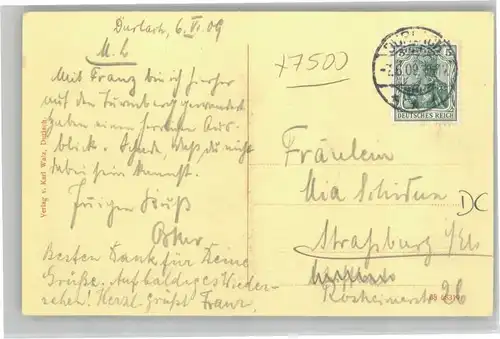 Durlach, 6. VI. 09
M. L
Mit Franz bin ich hierher
auf den Turmberg gewandert
haben einen herrlichen Aus-
blick. Schade, daß du nicht
dabei sein kannst.
Gruß
Besten Dank für Deine
Grüße. Auf baldiges Wieder-
sehen! Herzl. Grüßt Franz.
Verlag v. Karl Walz, Durlach.
+7500
DURLACH
6.09
DEUTSCHES REICH
Fräulein
Mia
DC
Straßburg i/Els
Rosheimerstr 26